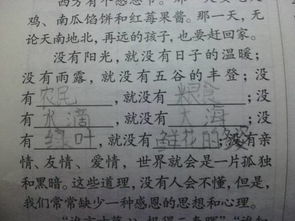 西方有个感恩节。那一天要吃火
鸡、南瓜馅饼和红莓果酱。那一天，无
论天南地北，再远的孩子，也要赶回家。
没有阳光，就没有日子的温暖；
没有雨露，就没有五谷的丰登；没
有农民，就没有粮食；没
有水滴，就没有大海；没
有绿叶，就没有鲜花的；没有亲
情、友情、爱情，世界就会是一片孤独
和黑暗。这些道理，没有人会不懂，但是，
我们常常缺少一种感恩的思想和心理。